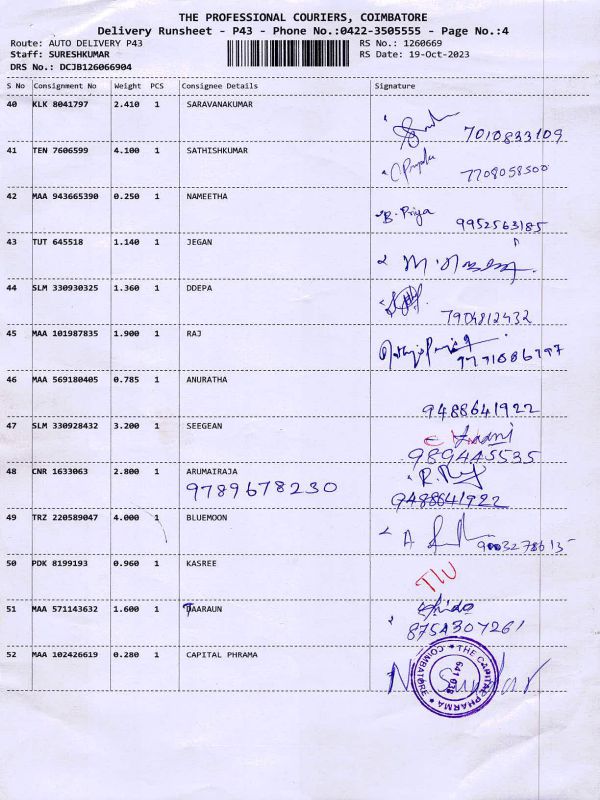 THE PROFESSIONAL COURIERS, COIMBATORE
Delivery Runsheet - P43 - Phone No.:0422-3505555 - Page No.:4
Route: AUTO DELIVERY P43 RS No.: 1260669
Staff: SURESHKUMAR RS Date: 19-Oct-2023
DRS No.: DCJB126066904
S No Consignment No Weight PCS Consignee Details Signature
40 KLK 8041797 2.410 1 SARAVANAKUMAR
7010833109
41 TEN 7606599 4.100 1 SATHISHKUMAR
7708058500
42 MAA 943665390 0.250 1 NAMEETHA
B. Priya 9952563185
43 TUT 645518 1.140 1 JEGAN
44 SLM 330930325 1.360 1 DDEPA
7904812432
45 MAA 101987835 1.900 1 RAJ
46 MAA 569180405 0.785 1 ANURATHA
9488641922
47 SLM 330928432 3.200 1 SEEGEAN
989445535
48 CNR 1633063 2.800 1 ARUMAIRAJA
9789678230
9488641922
49 TRZ 220589047 4.000 1 BLUEMOON
50 PDK 8199193 0.960 1 KASREE
51 MAA 571143632 1.600 1 TAARAUN
8754307261
52 MAA 102426619 0.280 1 CAPITAL PHRAMA
THE CAPITAL PHARMA
COIMBATORE